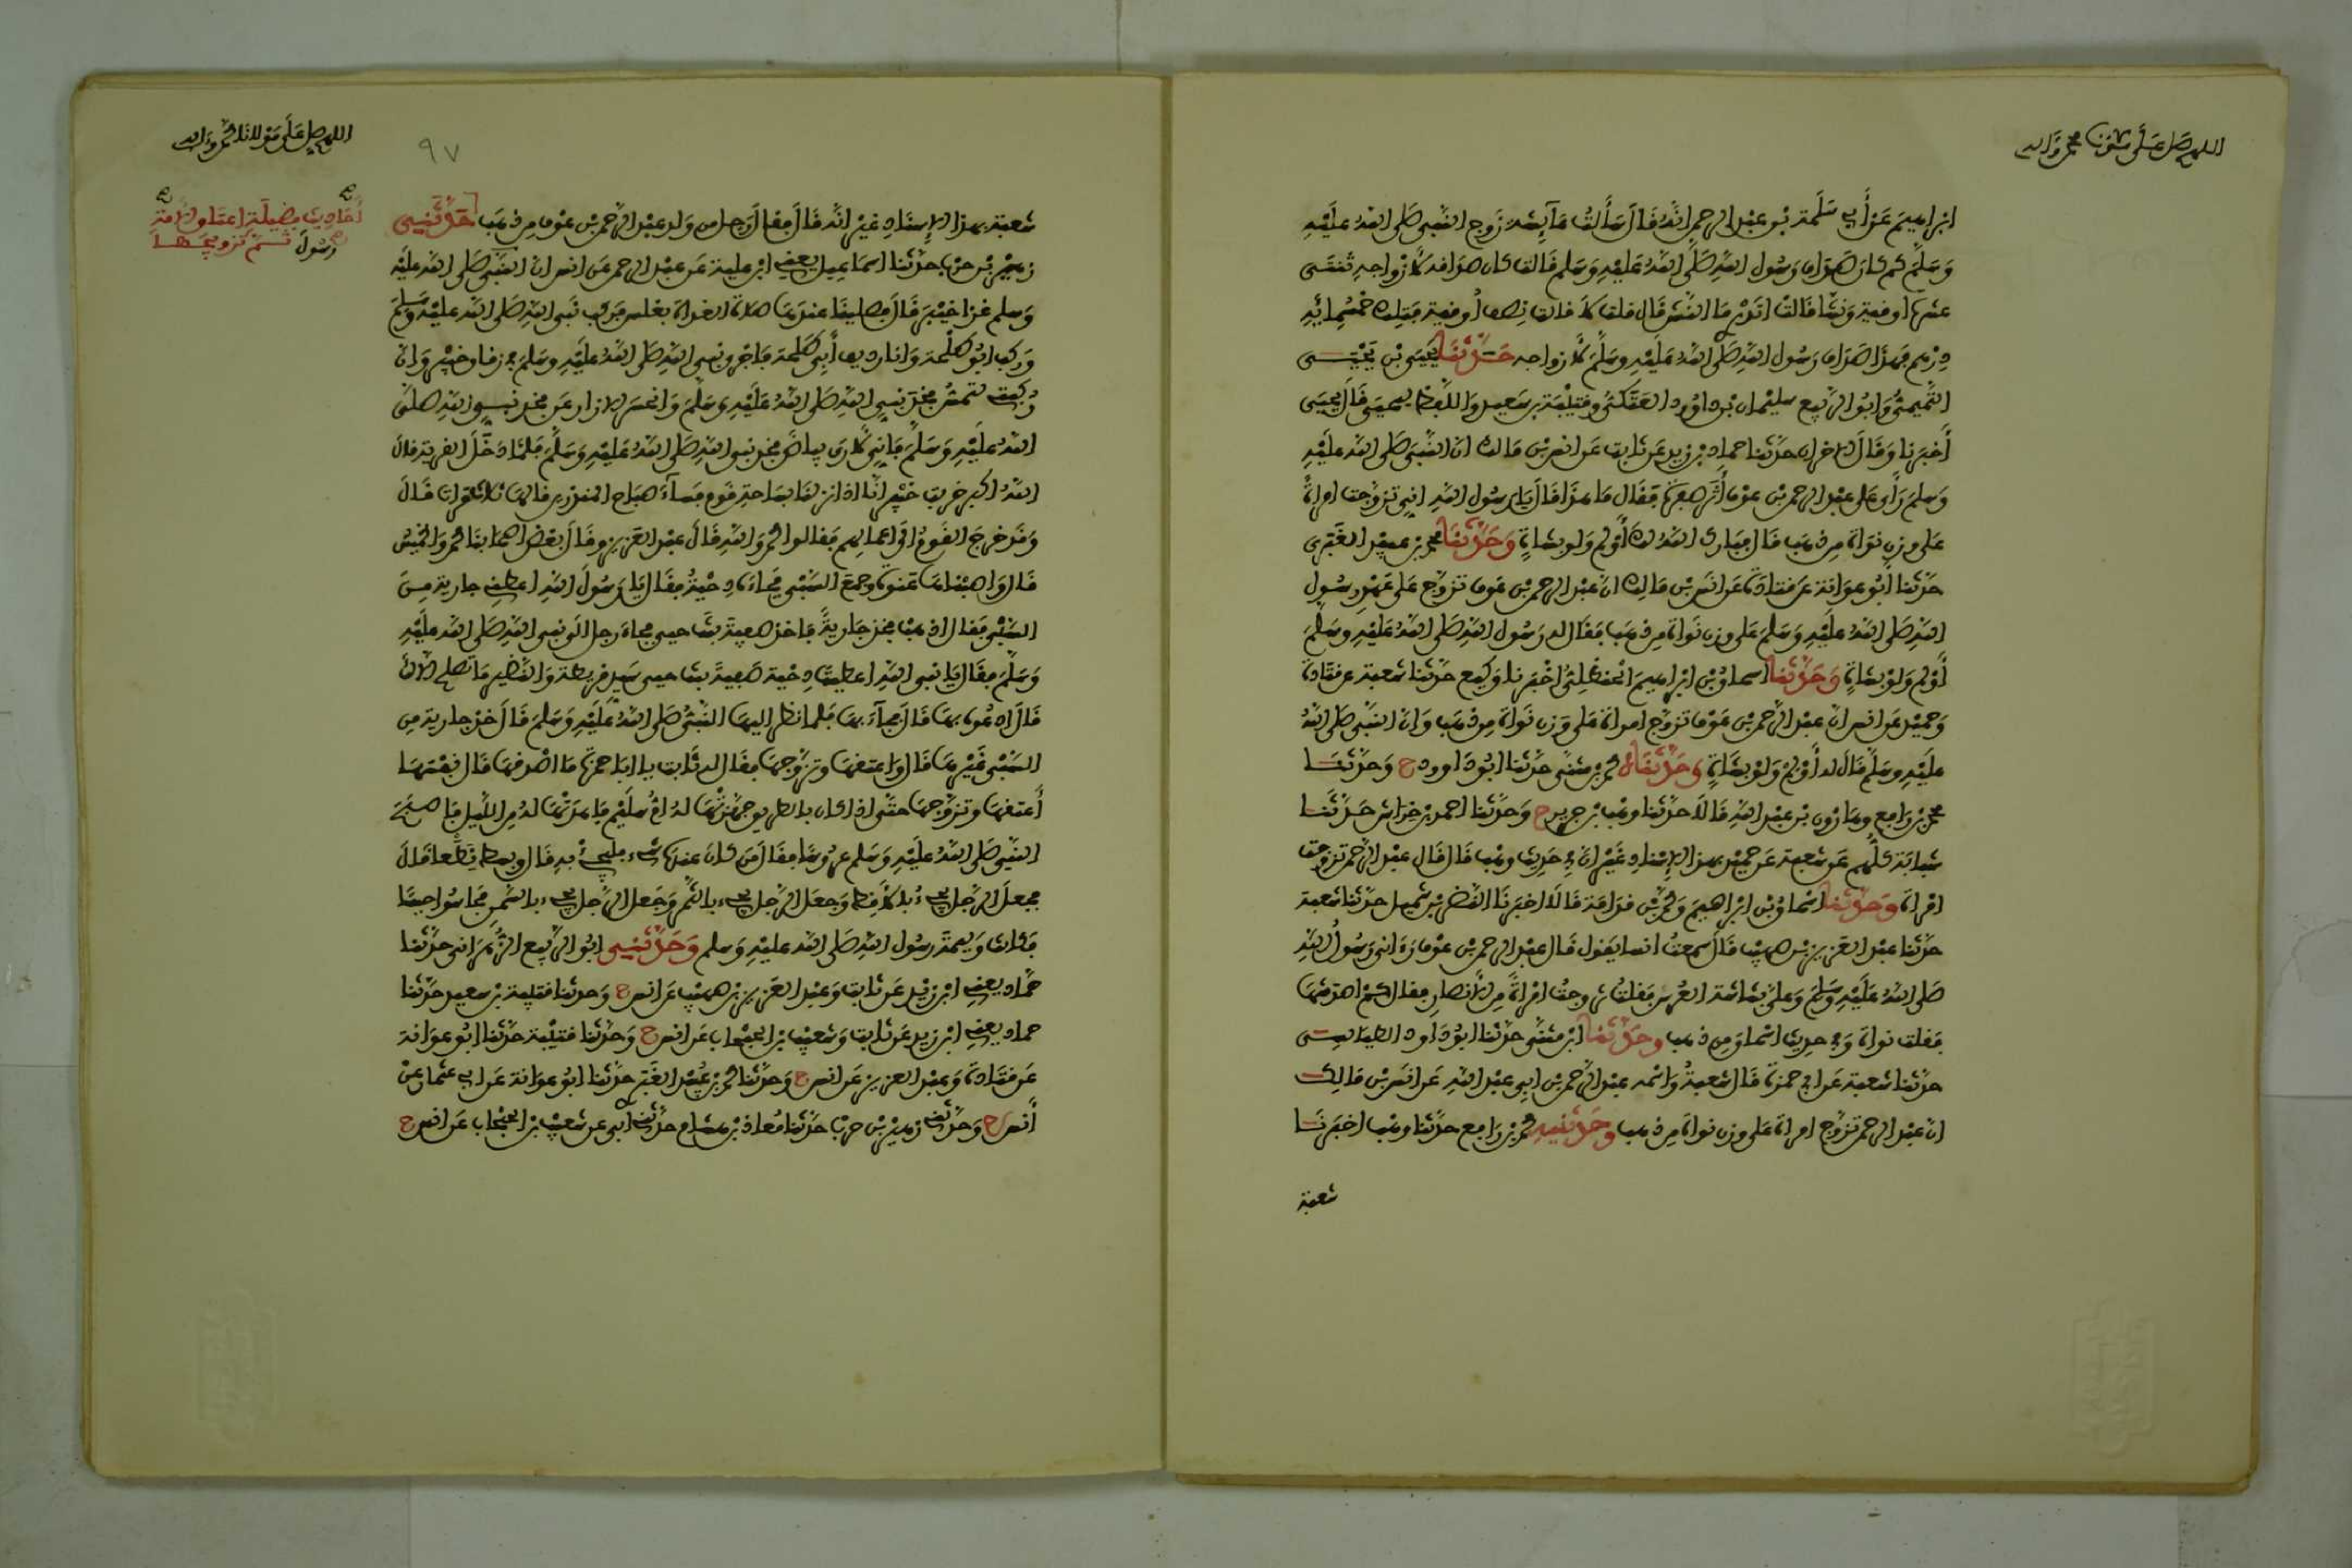 اللهم صل على محمد وآله
ابراهيم عن أبي سلمة بن عبد الرحمن انه قال سألت عائشة زوج النبي صلى الله عليه
وسلم كم كان صداق رسول الله صلى الله عليه وسلم قالت كان صداقه لأزواجه ثنتي
عشرة أوقية ونشا قالت اتدري ما النش قال قلت لا قالت نصف أوقية فتلك خمسمائة
درهم فهذا صداق رسول الله صلى الله عليه وسلم لأزواجه حدثنا يحيى بن يحيى
التميمي وابو الربيع سليمان بن داوود العتكي وقتيبة بن سعيد واللفظ ليحيى قال يحيى
أخبرنا وقال الاخران حدثنا حماد بن زيد عن ثابت عن انس بن مالك ان النبي صلى الله عليه
وسلم رأى على عبد الرحمن بن عوف أثر صفرة فقال ما هذا قال يا رسول الله اني تزوجت امرأة
على وزن نواة من ذهب قال فبارك الله لك أولم ولو بشاة وحدثنا محمد بن عبيد الغبري
حدثنا أبو عوانة عن قتادة عن انس بن مالك ان عبد الرحمن بن عوف تزوج على عهد رسول
الله صلى الله عليه وسلم على وزن نواة من ذهب فقال له رسول الله صلى الله عليه وسلم
أولم ولو بشاة وحدثنا اسحاق بن ابراهيم الحنظلي اخبرنا وكيع حدثنا شعبة عن قتادة
وحميد عن انس ان عبد الرحمن بن عوف تزوج امرأة على وزن نواة من ذهب وان النبي صلى الله
عليه وسلم قال له أولم ولو بشاة وحدثناه محمد بن مثنى حدثنا ابو داوود ح وحدثنا
محمد بن رافع وهارون بن عبد الله قالا حدثنا وهب بن جرير ح وحدثنا احمد بن خراش حدثنا
شبابة كلهم عن شعبة عن حميد بهذا الإسناد غير ان في حديث وهب قال قال عبد الرحمن تزوجت
امرأة وحدثنا اسحاق بن ابراهيم ومحمد بن قدامة قالا اخبرنا النضر بن شميل حدثنا شعبة
حدثنا عبد العزيز بن صهيب قال سمعت انسا يقول قال عبد الرحمن بن عوف رءاني رسول الله
صلى الله عليه وسلم وعلي بشاشة العرس فقلت تزوجت امرأة من الأنصار فقال كم اصدقتها
فقلت نواة وفي حديث اسحاق من ذهب وحدثنا ابن مثنى حدثنا ابو داود الطيالسي
حدثنا شعبة عن ابي حمزة قال شعبة واسمه عبد الرحمن بن ابي عبد الله عن انس بن مالك
ان عبد الرحمن تزوج امرأة على وزن نواة من ذهب وحدثنيه محمد بن رافع حدثنا وهب اخبرنا
شعبة
اللهم صل على مولانا محمد وآله
٩٧
أحاديث فضيلة اعتاق الامة
ثم تزويجها
رسول
شعبة بهذا الإسناد غير انه قال فقال رجل من ولد عبد الرحمن بن عوف من ذهب حدثني
زهير بن حرب حدثنا اسماعيل يعني ابن علية عن عبد العزيز عن انس ان النبي صلى الله عليه
وسلم غزا خيبر قال فصلينا عندها صلاة الغداة بغلس فركب نبي الله صلى الله عليه وسلم
وركب ابو طلحة وانا رديف أبي طلحة فاجرى نبي الله صلى الله عليه وسلم في زقاق خيبر وان
ركبتي لتمس فخذ نبي الله صلى الله عليه وسلم وانحسر الازار عن فخذ نبي الله صلى
الله عليه وسلم فإني لأرى بياض فخذ نبي الله صلى الله عليه وسلم فلما دخل القرية قال
الله اكبر خربت خيبر انا اذا نزلنا بساحة قوم فساء صباح المنذرين قالها ثلاث مرات قال
وقد خرج القوم الى اعمالهم فقالوا محمد والله قال عبد العزيز وقال بعض اصحابنا محمد والخميس
قال واصبناها عنوة وجمع السبي فجاءه دحية فقال يا رسول الله اعطني جارية من
السبي فقال اذهب فخذ جارية فاخذ صفية بنت حيي فجاء رجل الى نبي الله صلى الله عليه
وسلم فقال يا نبي الله اعطيت دحية صفية بنت حيي سيد قريظة والنضير ما تصلح الا لك
قال ادعوه بها قال فجاء بها فلما نظر اليها النبي صلى الله عليه وسلم قال خذ جارية من
السبي غيرها قال واعتقها وتزوجها فقال له ثابت يا ابا حمزة ما اصدقها قال نفسها
أعتقها وتزوجها حتى اذا كان بالطريق جهزتها له ام سليم فاهدتها له من الليل فاصبح
النبي صلى الله عليه وسلم عروسا فقال من كان عنده شيء فليجئ به قال وبسط نطعا قال
فجعل الرجل يجيء بالأقط وجعل الرجل يجيء بالتمر وجعل الرجل يجيء بالسمن فحاسوا حيسا
فكانت وليمة رسول الله صلى الله عليه وسلم وحدثني ابو الربيع الزهراني حدثنا
حماد يعني ابن زيد عن ثابت وعبد العزيز بن صهيب عن انس ح وحدثنا قتيبة بن سعيد حدثنا
حماد يعني ابن زيد عن ثابت وشعيب بن الحبحاب عن انس ح وحدثنا قتيبة حدثنا ابو عوانة
عن قتادة وعبد العزيز عن انس ح وحدثنا محمد بن عبيد الغبري حدثنا ابو عوانة عن ابي عثمان عن
أنس ح وحدثني زهير بن حرب حدثنا معاذ بن هشام حدثني أبي عن شعيب بن الحبحاب عن انس ح